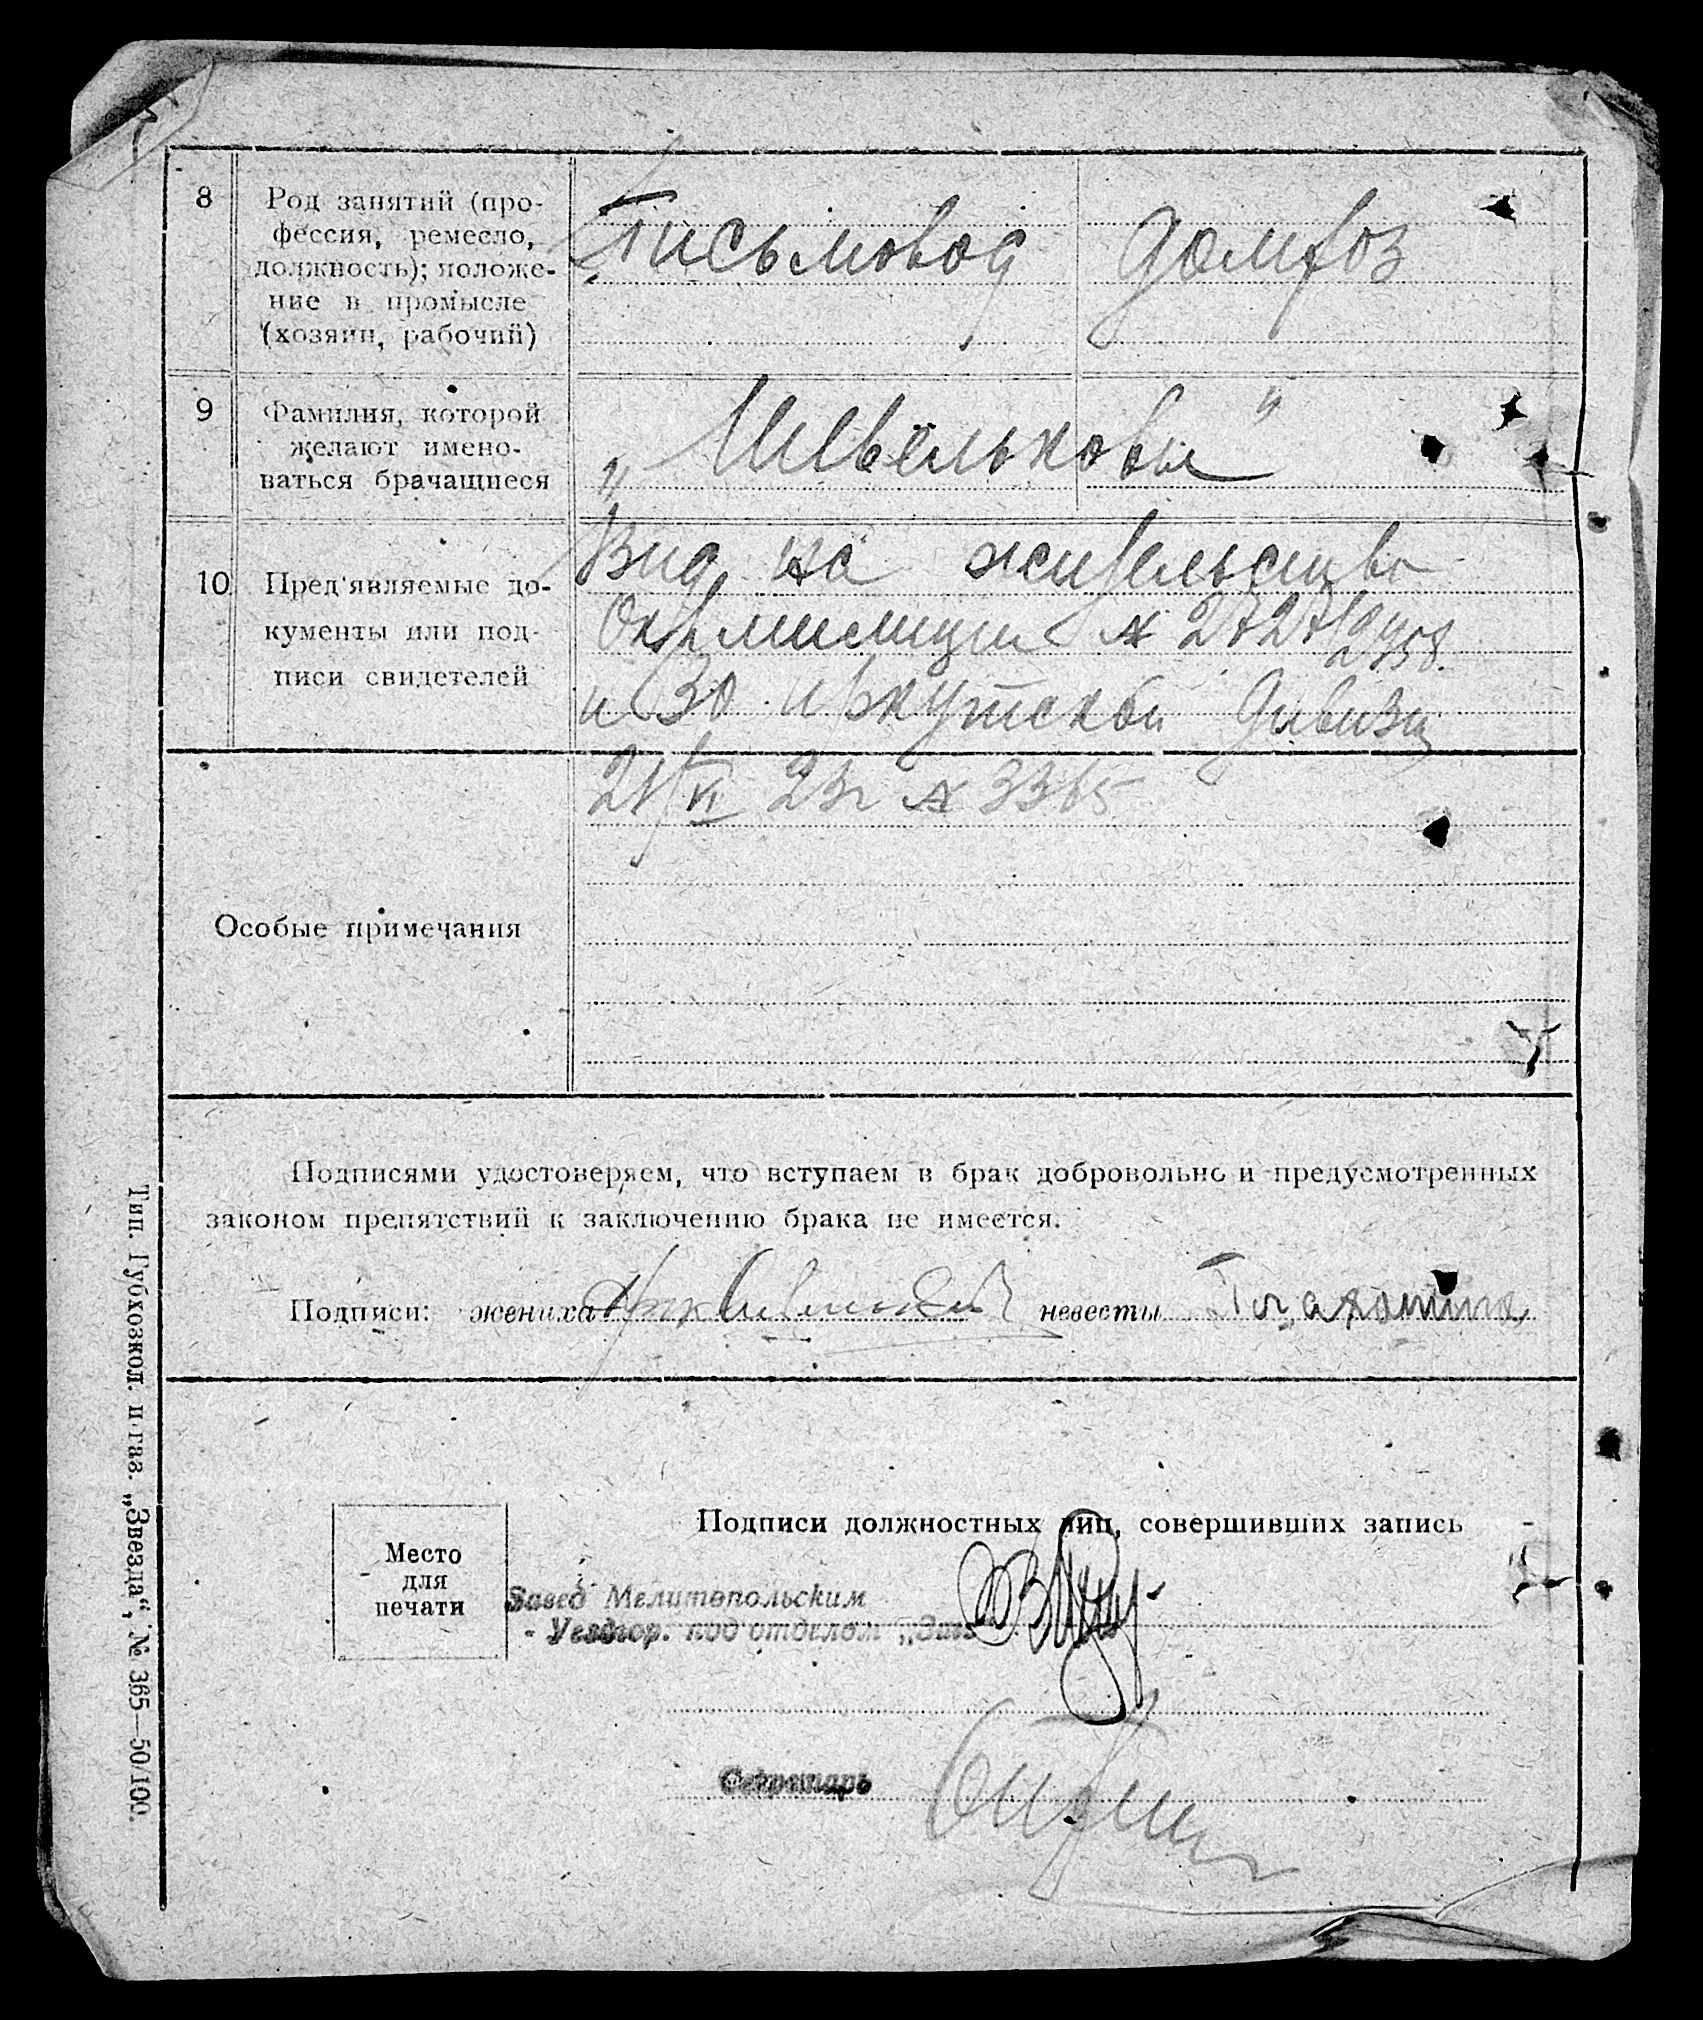 8
Род занятий (про-
фессия, ремесло,
должность); положе-
ние в промысле
(хозяин, рабочий)
Письмовод
домхоз
9
Фамилия, которой
желают имено-
ваться брачащиеся
„Шевельковы"
10
Пред'являемые до-
кументы или под-
писи свидетелей
Вид на жительство
Окрмилиции № 2727
и 30 Иркутской дивизи
21/VI 23г № 3365
Особые примечания
Подписями удостоверяем, что вступаем в брак добровольно и предусмотренных
законом препятствий к заключению брака не имеется.
Подписи: жениха невесты
Подписи должностных лиц, совершивших запись
Место
для
печати
Завед Мелитопольским
Уездгор. под отделом „Загс"
Секретарь
Тип. Губхозкол. п газ. „Звезда“, № 365—50/100.